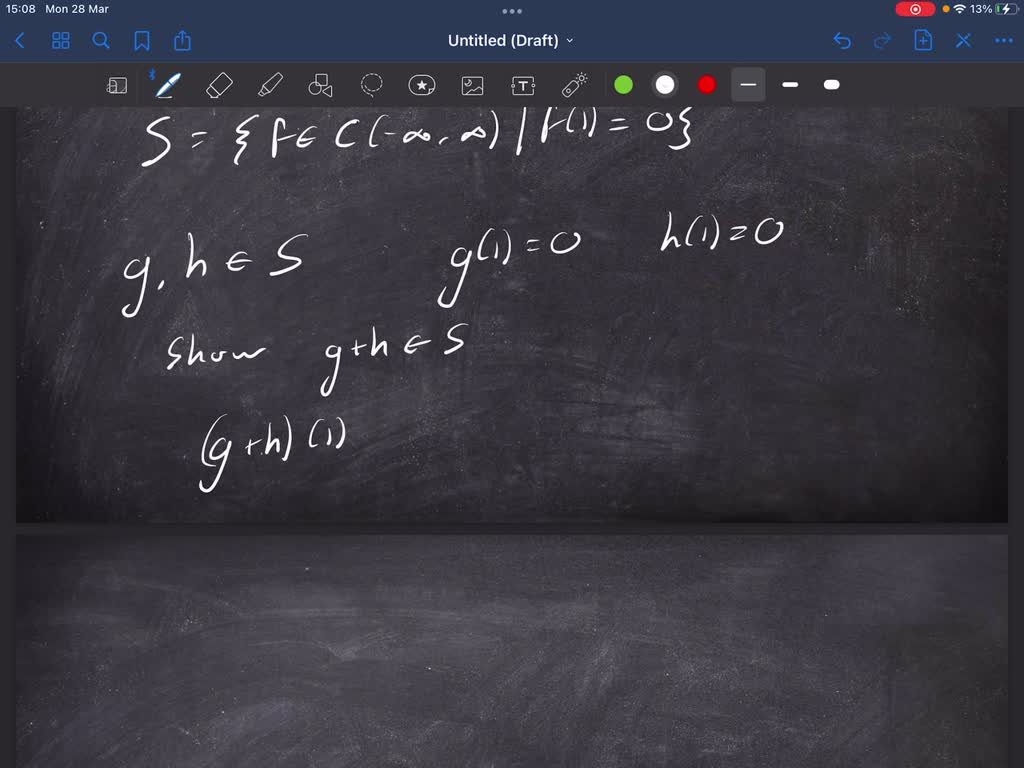 15:08 Mon 28 Mar 13%
Untitled (Draft)
S = {f ∈ C(-∞, ∞) | f(1) = 0}
g, h ∈ S g(1) = 0 h(1) = 0
Show g+h ∈ S
(g+h)(1)